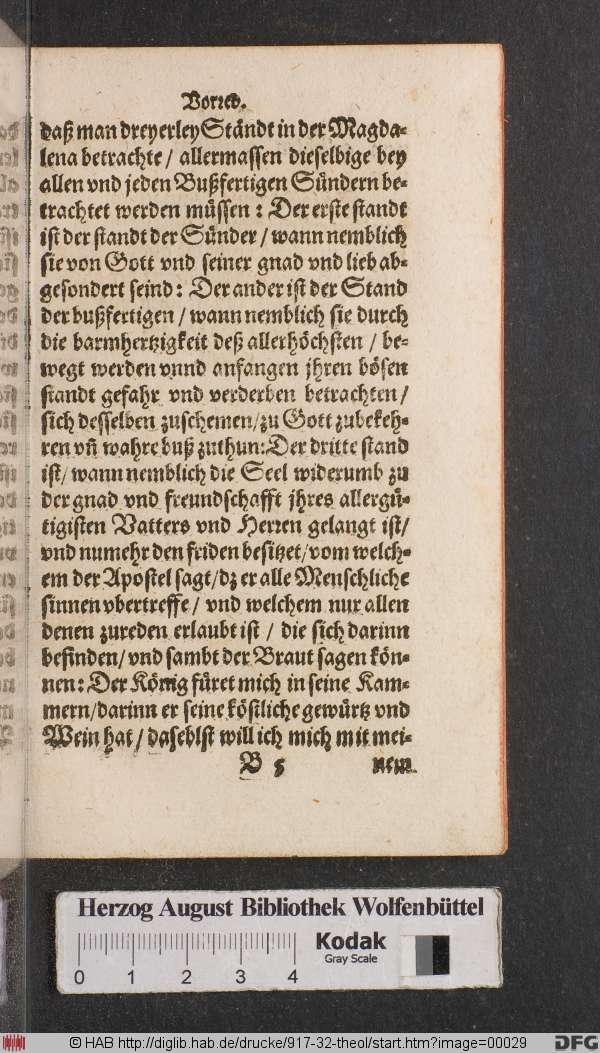 Vorred.
daß man dreyerley Ständt in der Magda-
lena betrachte / allermassen dieselbige bey
allen vnd jeden Bußfertigen Sündern be-
trachtet werden müssen : Der erste standt
ist der standt der Sünder / wann nemblich
sie von Gott vnd seiner gnad vnd lieb ab-
gesondert seind : Der ander ist der Stand
der bußfertigen / wann nemblich sie durch
die barmhertzigkeit deß allerhöchsten / be-
wegt werden vnnd anfangen jhren bösen
standt gefahr vnd verderben betrachten /
sich desselben zuschemen / zu Gott zubekeh-
ren vn̄ wahre buß zuthun: Der dritte stand
ist / wann nemblich die Seel widerumb zu
der gnad vnd freundschafft jhres allergü-
tigisten Vatters vnd Herren gelangt ist /
vnd numehr den friden besitzet / vom welch-
em der Apostel sagt / dz er alle Menschliche
sinnen vbertreffe / vnd welchem nur allen
denen zureden erlaubt ist / die sich darinn
befinden / vnd sambt der Braut sagen kön-
nen : Der König füret mich in seine Kam-
mern / darinn er seine köstliche gewürtz vnd
Wein hat / daseblst will ich mich mit mei-
B 5 nem
Herzog August Bibliothek Wolfenbüttel
Kodak
Gray Scale
0 1 2 3 4
© HAB http://diglib.hab.de/drucke/917-32-theol/start.htm?image=00029
DFG